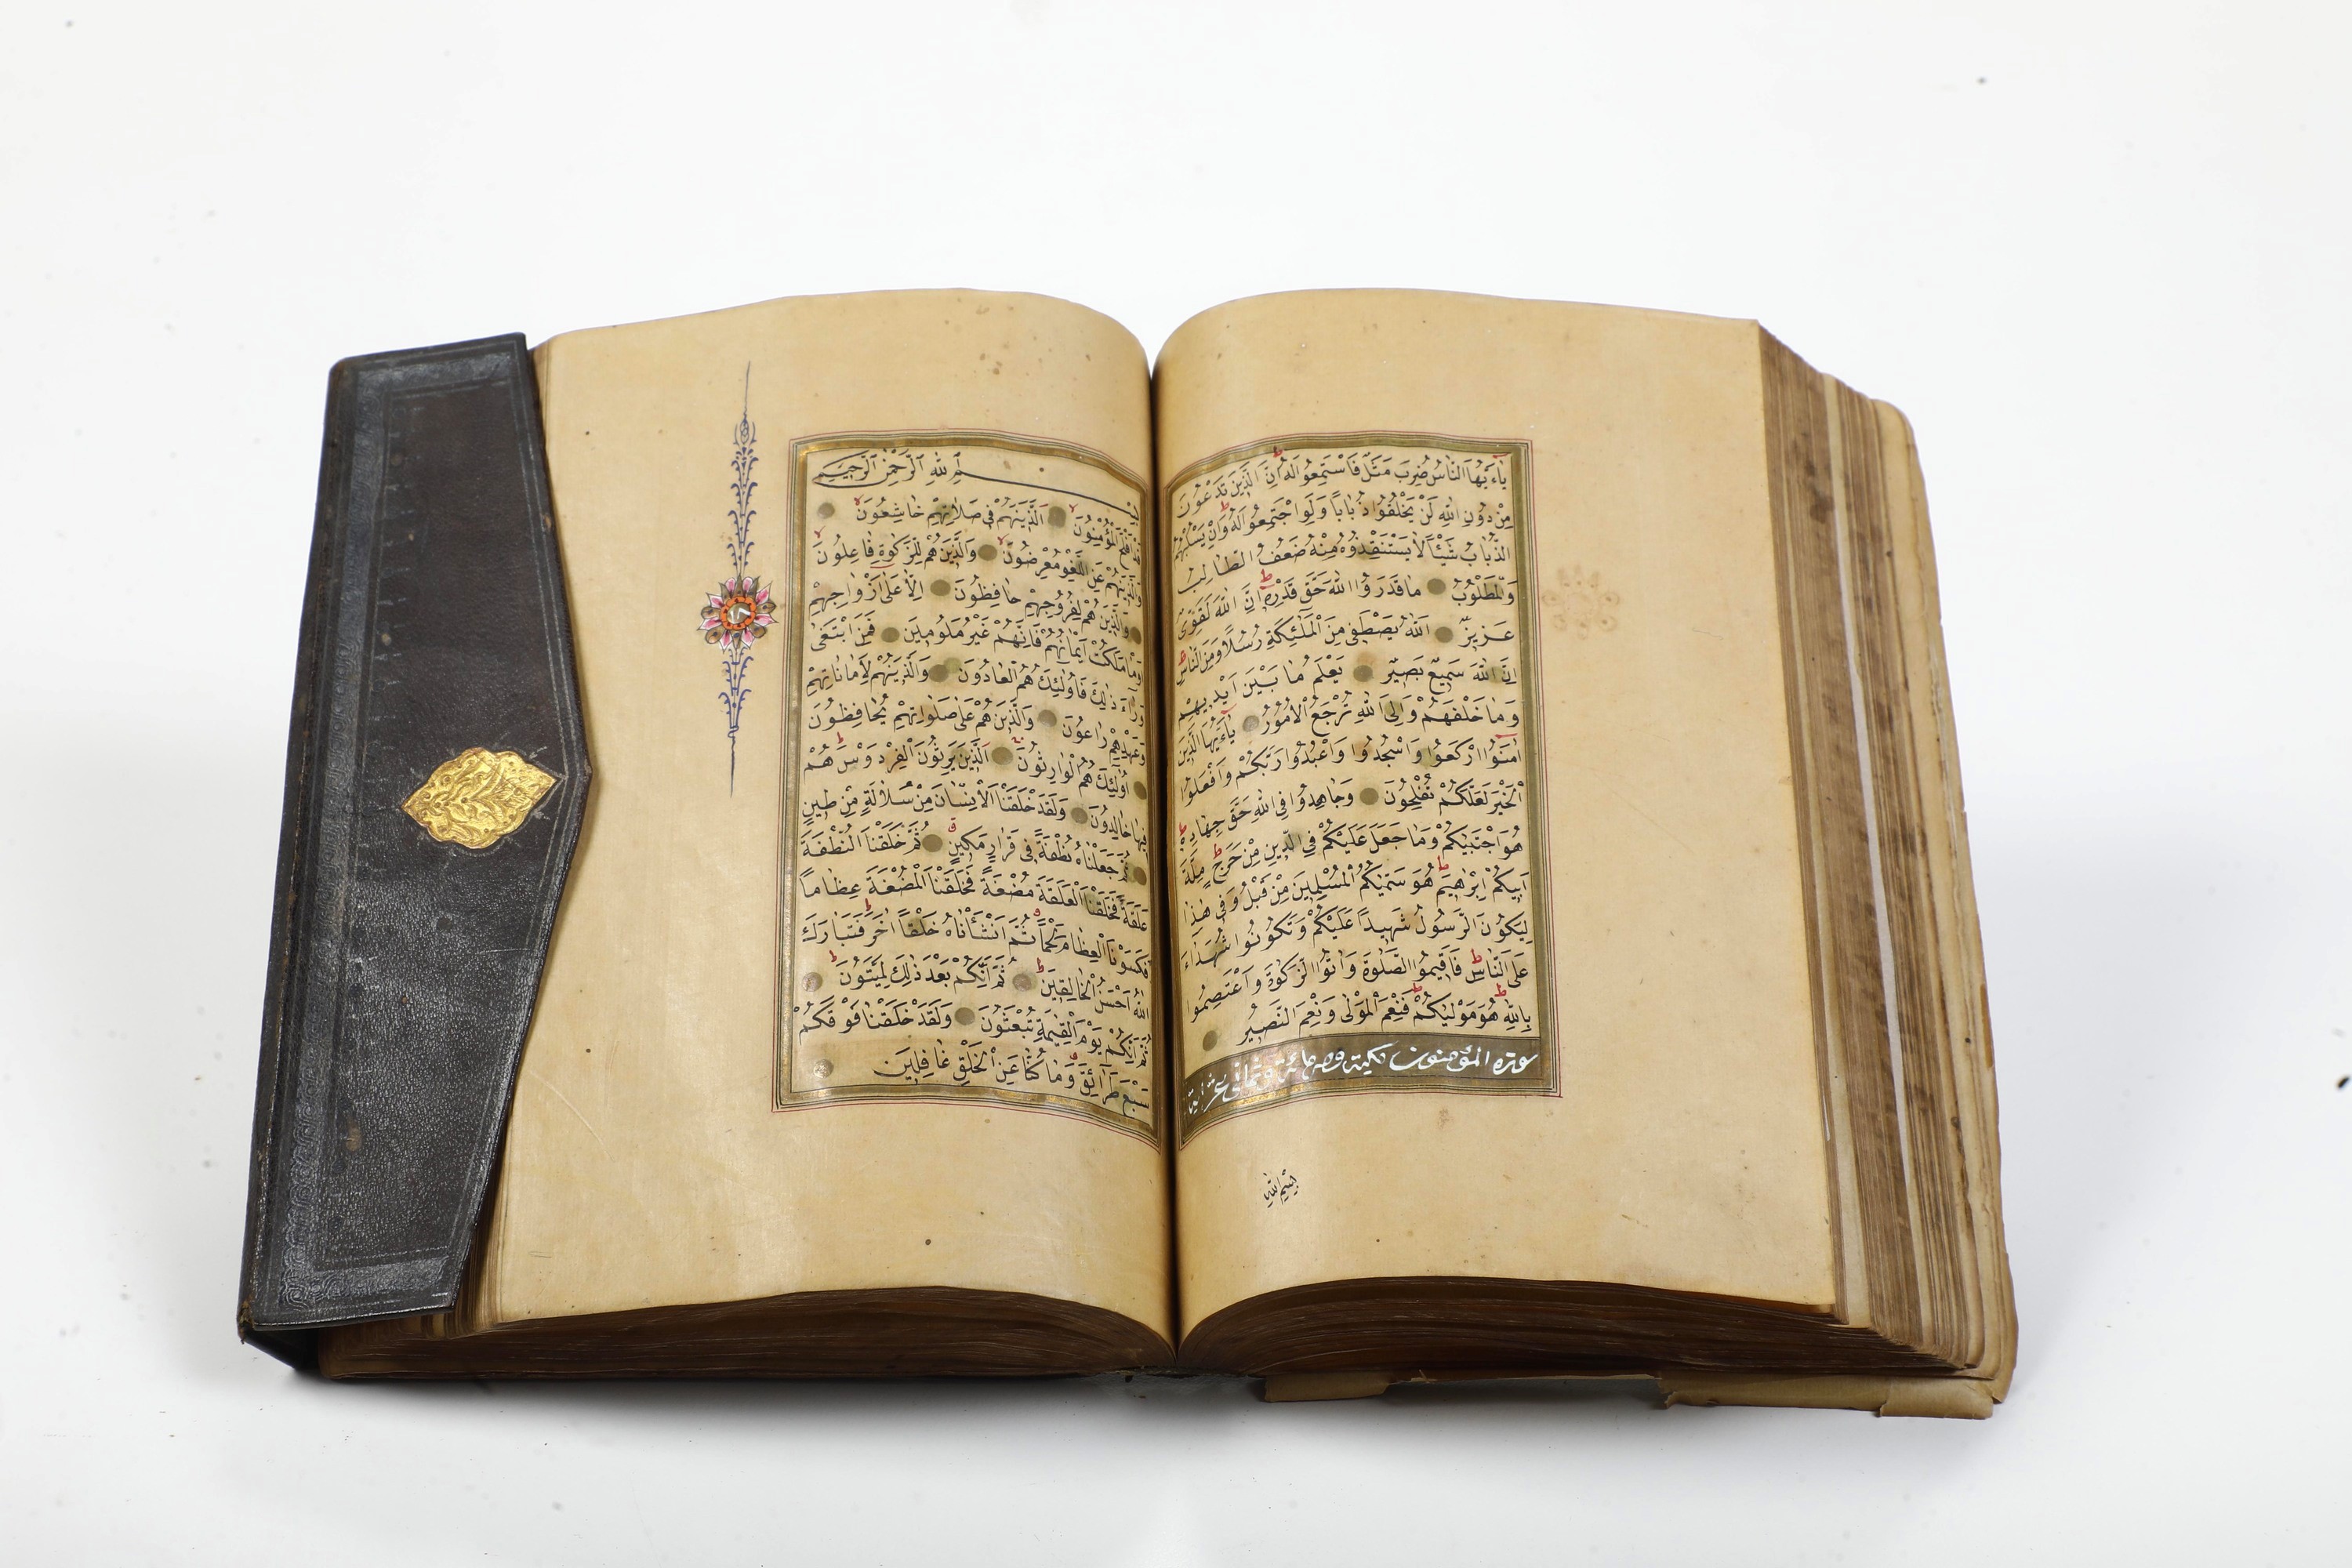 يَٓاءَيُّهَا النَّاسُ ضُرِبَ مَثَلٌ فَاسْتَمِعُوا لَهُ اِنَّ الَّذِينَ تَدْعُونَ
مِنْ دُونِ اللّٰهِ لَنْ يَخْلُقُوا ذُبَابًا وَلَوِ اجْتَمَعُوا لَهُ وَاِنْ يَسْلُبْهُمُ
الذُّبَابُ شَيْئًا لَا يَسْتَنْقِذُوهُ مِنْهُ ضَعُفَ الطَّالِبُ
وَالْمَطْلُوبُ مَا قَدَرُوا اللّٰهَ حَقَّ قَدْرِهِ اِنَّ اللّٰهَ لَقَوِىٌّ
عَزِيزٌ اَللّٰهُ يَصْطَفِى مِنَ الْمَلٰٓئِكَةِ رُسُلًا وَمِنَ النَّاسِ
اِنَّ اللّٰهَ سَمِيعٌ بَصِيرٌ يَعْلَمُ مَا بَيْنَ اَيْدِيهِمْ
وَمَا خَلْفَهُمْ وَاِلَى اللّٰهِ تُرْجَعُ الْاُمُورُ يَٓاءَيُّهَا الَّذِينَ
اٰمَنُوا ارْكَعُوا وَاسْجُدُوا وَاعْبُدُوا رَبَّكُمْ وَافْعَلُوا
الْخَيْرَ لَعَلَّكُمْ تُفْلِحُونَ وَجَاهِدُوا فِى اللّٰهِ حَقَّ جِهَادِهِ
هُوَ اجْتَبٰيكُمْ وَمَا جَعَلَ عَلَيْكُمْ فِى الدِّينِ مِنْ حَرَجٍ مِلَّةَ
اَبِيكُمْ اِبْرٰهِيمَ هُوَ سَمّٰيكُمُ الْمُسْلِمِينَ مِنْ قَبْلُ وَفِى هٰذَا
لِيَكُونَ الرَّسُولُ شَهِيدًا عَلَيْكُمْ وَتَكُونُوا شُهَدَٓاءَ
عَلَى النَّاسِ فَاَقِيمُوا الصَّلٰوةَ وَاٰتُوا الزَّكٰوةَ وَاعْتَصِمُوا
بِاللّٰهِ هُوَ مَوْلٰيكُمْ فَنِعْمَ الْمَوْلٰى وَنِعْمَ النَّصِيرُ
سورة المؤمنون مكية وهى مائة وثمانى عشر اية
بِسْمِ اللّٰهِ
بِسْمِ اللّٰهِ الرَّحْمٰنِ الرَّحِيمِ
قَدْ اَفْلَحَ الْمُؤْمِنُونَ اَلَّذِينَ هُمْ فِى صَلَاتِهِمْ خَاشِعُونَ
وَالَّذِينَ هُمْ عَنِ اللَّغْوِ مُعْرِضُونَ وَالَّذِينَ هُمْ لِلزَّكٰوةِ فَاعِلُونَ
وَالَّذِينَ هُمْ لِفُرُوجِهِمْ حَافِظُونَ اِلَّا عَلٰى اَزْوَاجِهِمْ
وَمَا مَلَكَتْ اَيْمَانُهُمْ فَاِنَّهُمْ غَيْرُ مَلُومِينَ فَمَنِ ابْتَغٰى
وَرَٓاءَ ذٰلِكَ فَاُولٰٓئِكَ هُمُ الْعَادُونَ وَالَّذِينَ هُمْ لِاَمَانَاتِهِمْ
وَعَهْدِهِمْ رَاعُونَ وَالَّذِينَ هُمْ عَلٰى صَلَوَاتِهِمْ يُحَافِظُونَ
اُولٰٓئِكَ هُمُ الْوَارِثُونَ اَلَّذِينَ يَرِثُونَ الْفِرْدَوْسَ هُمْ
فِيهَا خَالِدُونَ وَلَقَدْ خَلَقْنَا الْاِنْسَانَ مِنْ سُلَالَةٍ مِنْ طِينٍ
ثُمَّ جَعَلْنَاهُ نُطْفَةً فِى قَرَارٍ مَكِينٍ ثُمَّ خَلَقْنَا النُّطْفَةَ
عَلَقَةً فَخَلَقْنَا الْعَلَقَةَ مُضْغَةً فَخَلَقْنَا الْمُضْغَةَ عِظَامًا
فَكَسَوْنَا الْعِظَامَ لَحْمًا ثُمَّ اَنْشَأْنَاهُ خَلْقًا اٰخَرَ فَتَبَارَكَ
اللّٰهُ اَحْسَنُ الْخَالِقِينَ ثُمَّ اِنَّكُمْ بَعْدَ ذٰلِكَ لَمَيِّتُونَ
ثُمَّ اِنَّكُمْ يَوْمَ الْقِيٰمَةِ تُبْعَثُونَ وَلَقَدْ خَلَقْنَا فَوْقَكُمْ
سَبْعَ طَرَٓائِقَ وَمَا كُنَّا عَنِ الْخَلْقِ غَافِلِينَ